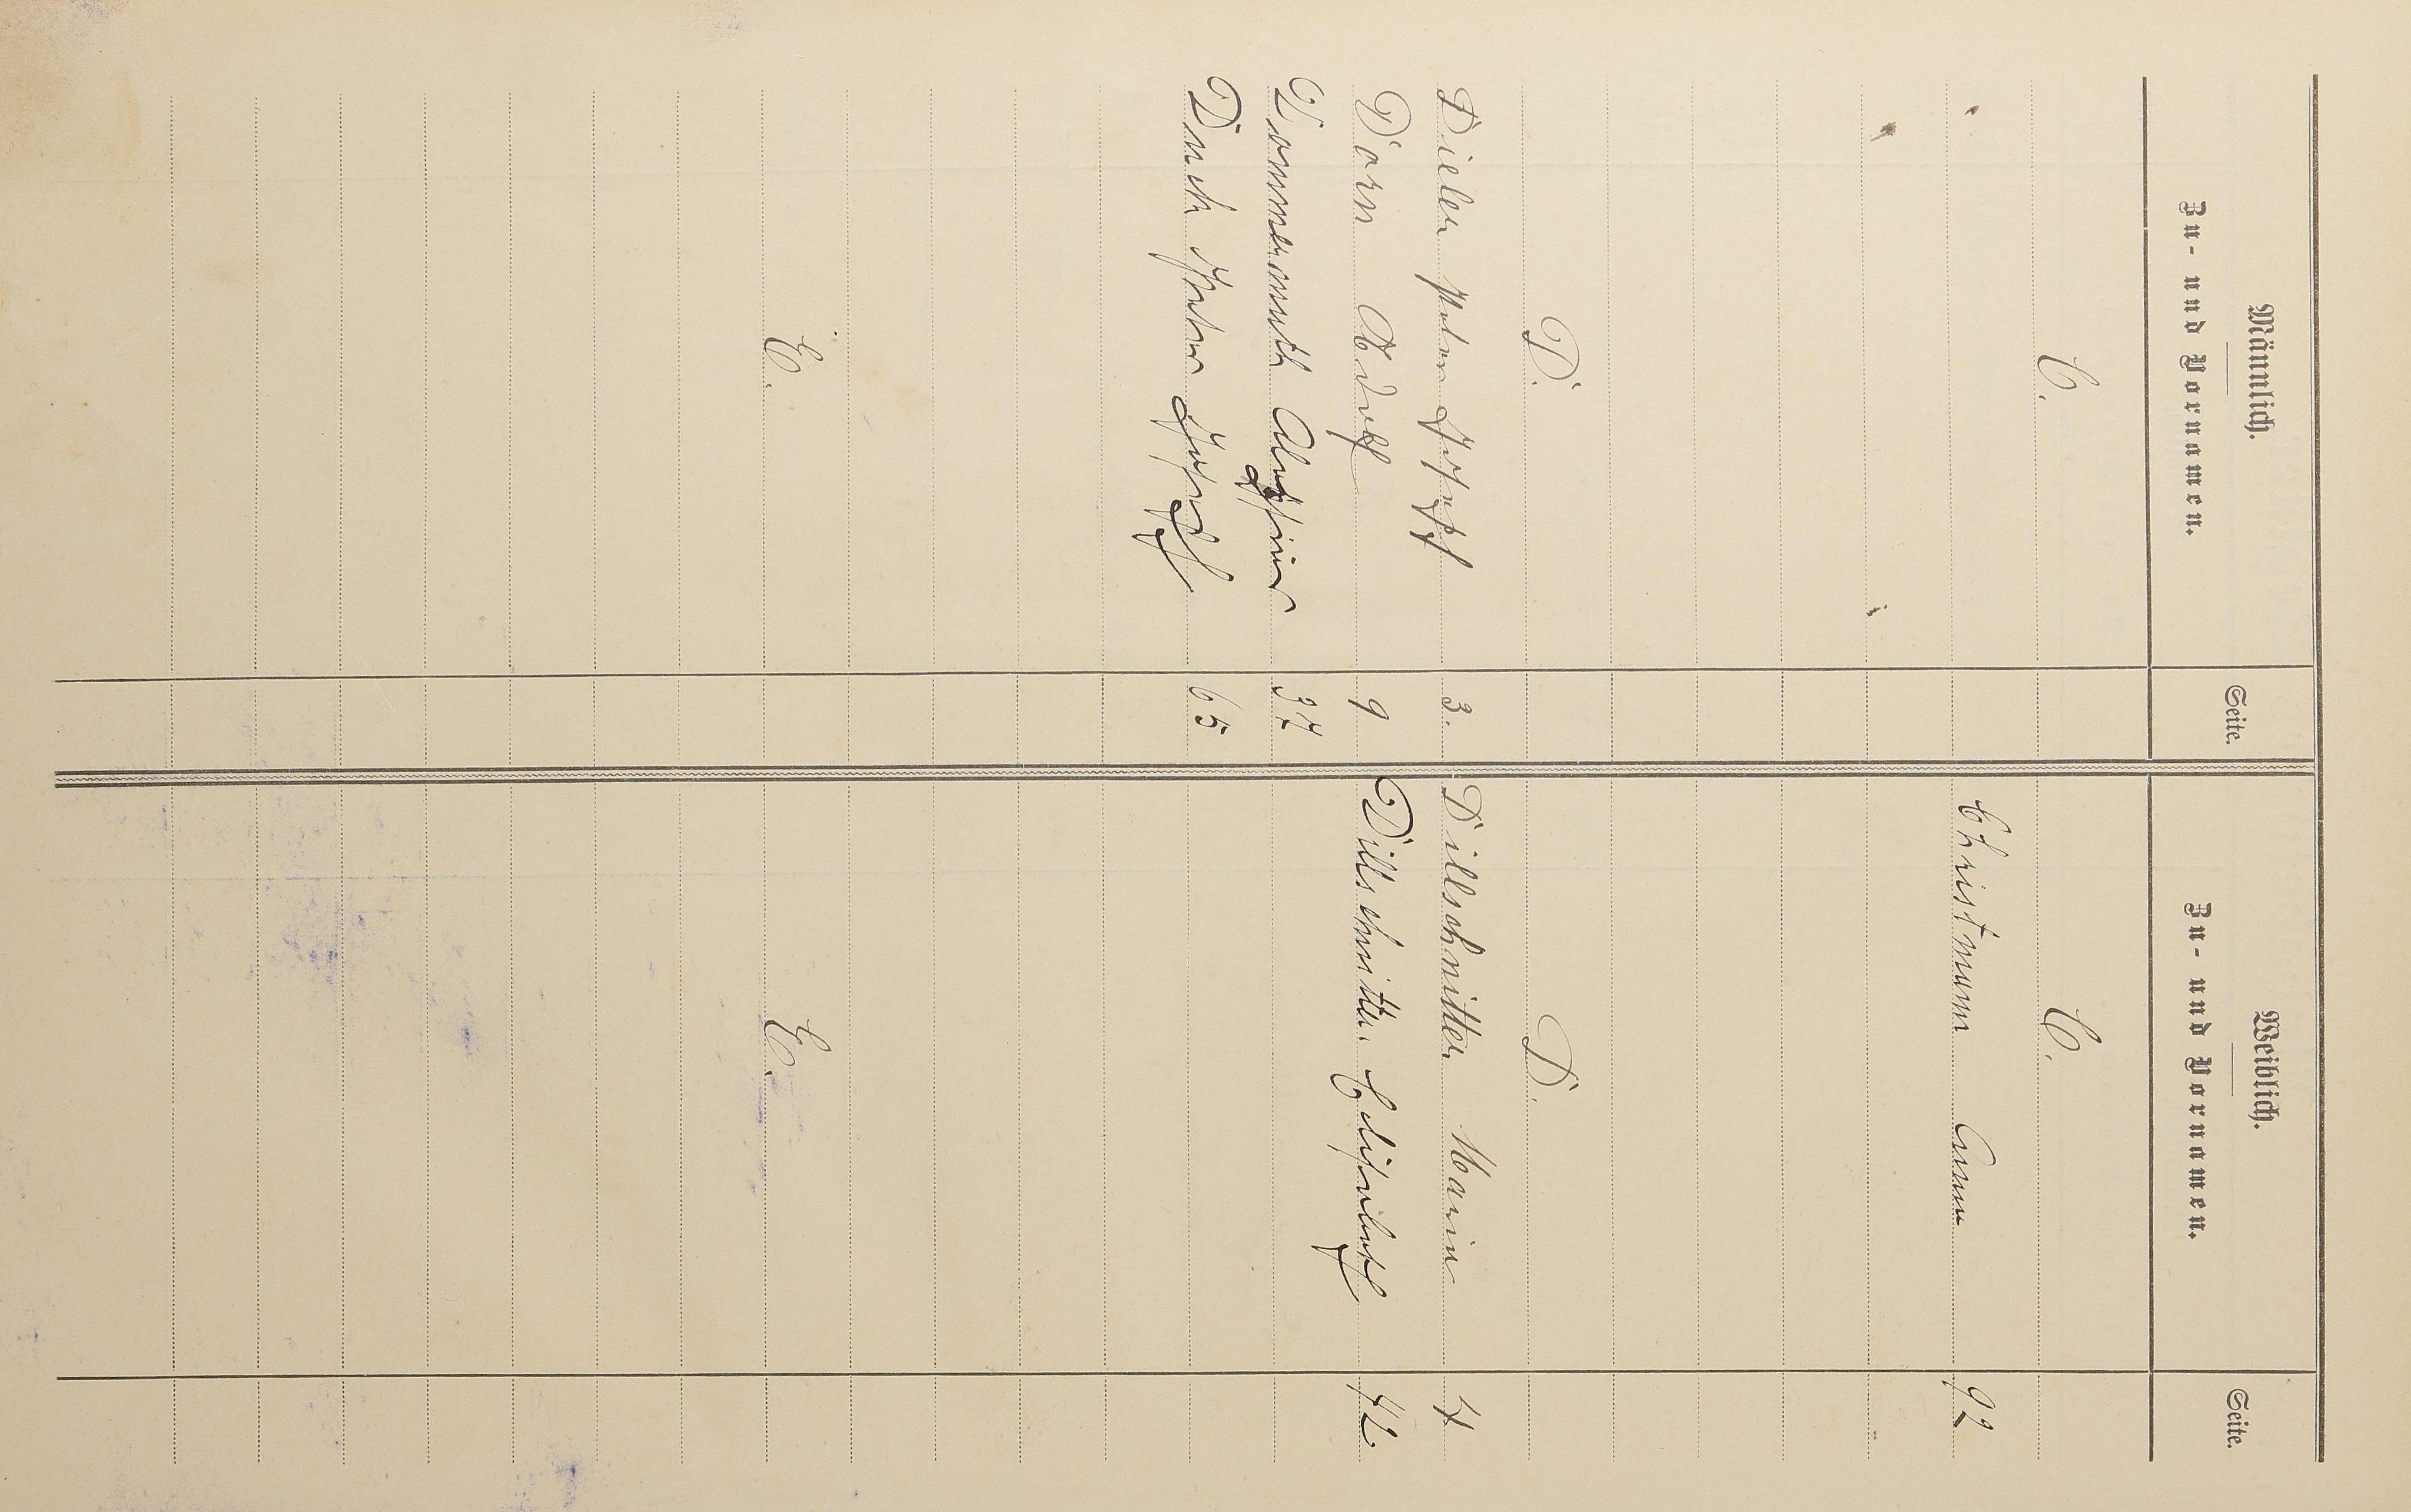 Männlich. Weiblich.
Zu- und Vornamen. Seite. Zu- und Vornamen. Seite.
C. C.
Christmann Anna 92
D. D.
Dieler Peter Joseph 3. Dillschnitter Maria 4
Dorn Adolf 9 Dillschnitter Elisabeth 42.
Dommermuth 37
Duch Peter Joseph 65
E. E.